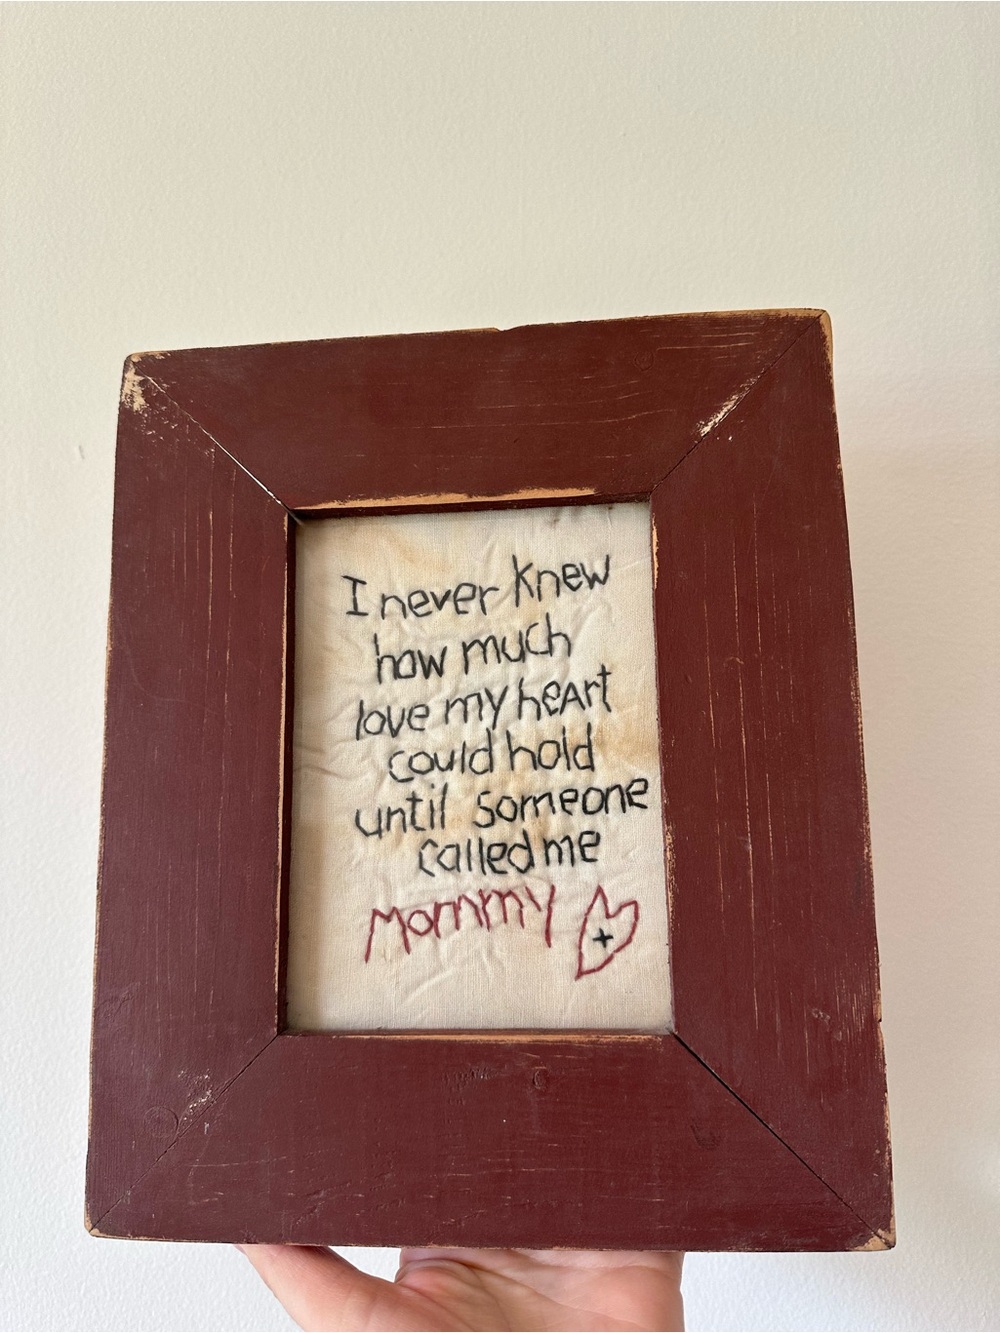 I never knew
how much
love my heArt
could hold
until someone
called me
Mommy